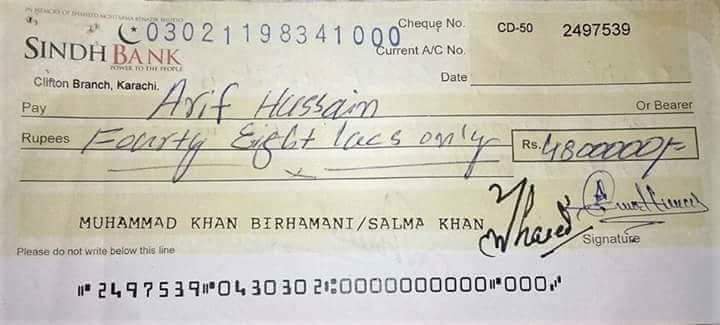 IN MEMORY OF SHAHEED MOHTARMA BENAZIR BHUTTO
SINDH BANK
POWER TO THE PEOPLE
03021198341000
Cheque No. CD-50 2497539
Current A/C No.
Clifton Branch, Karachi.
Date
Pay Arif Hussain Or Bearer
Rupees Fourty Eight lacs only Rs. 4800000/-
MUHAMMAD KHAN BIRHAMANI/SALMA KHAN
Signature
Please do not write below this line
⑈2497539⑈0430302⑆0000000000⑈000⑈